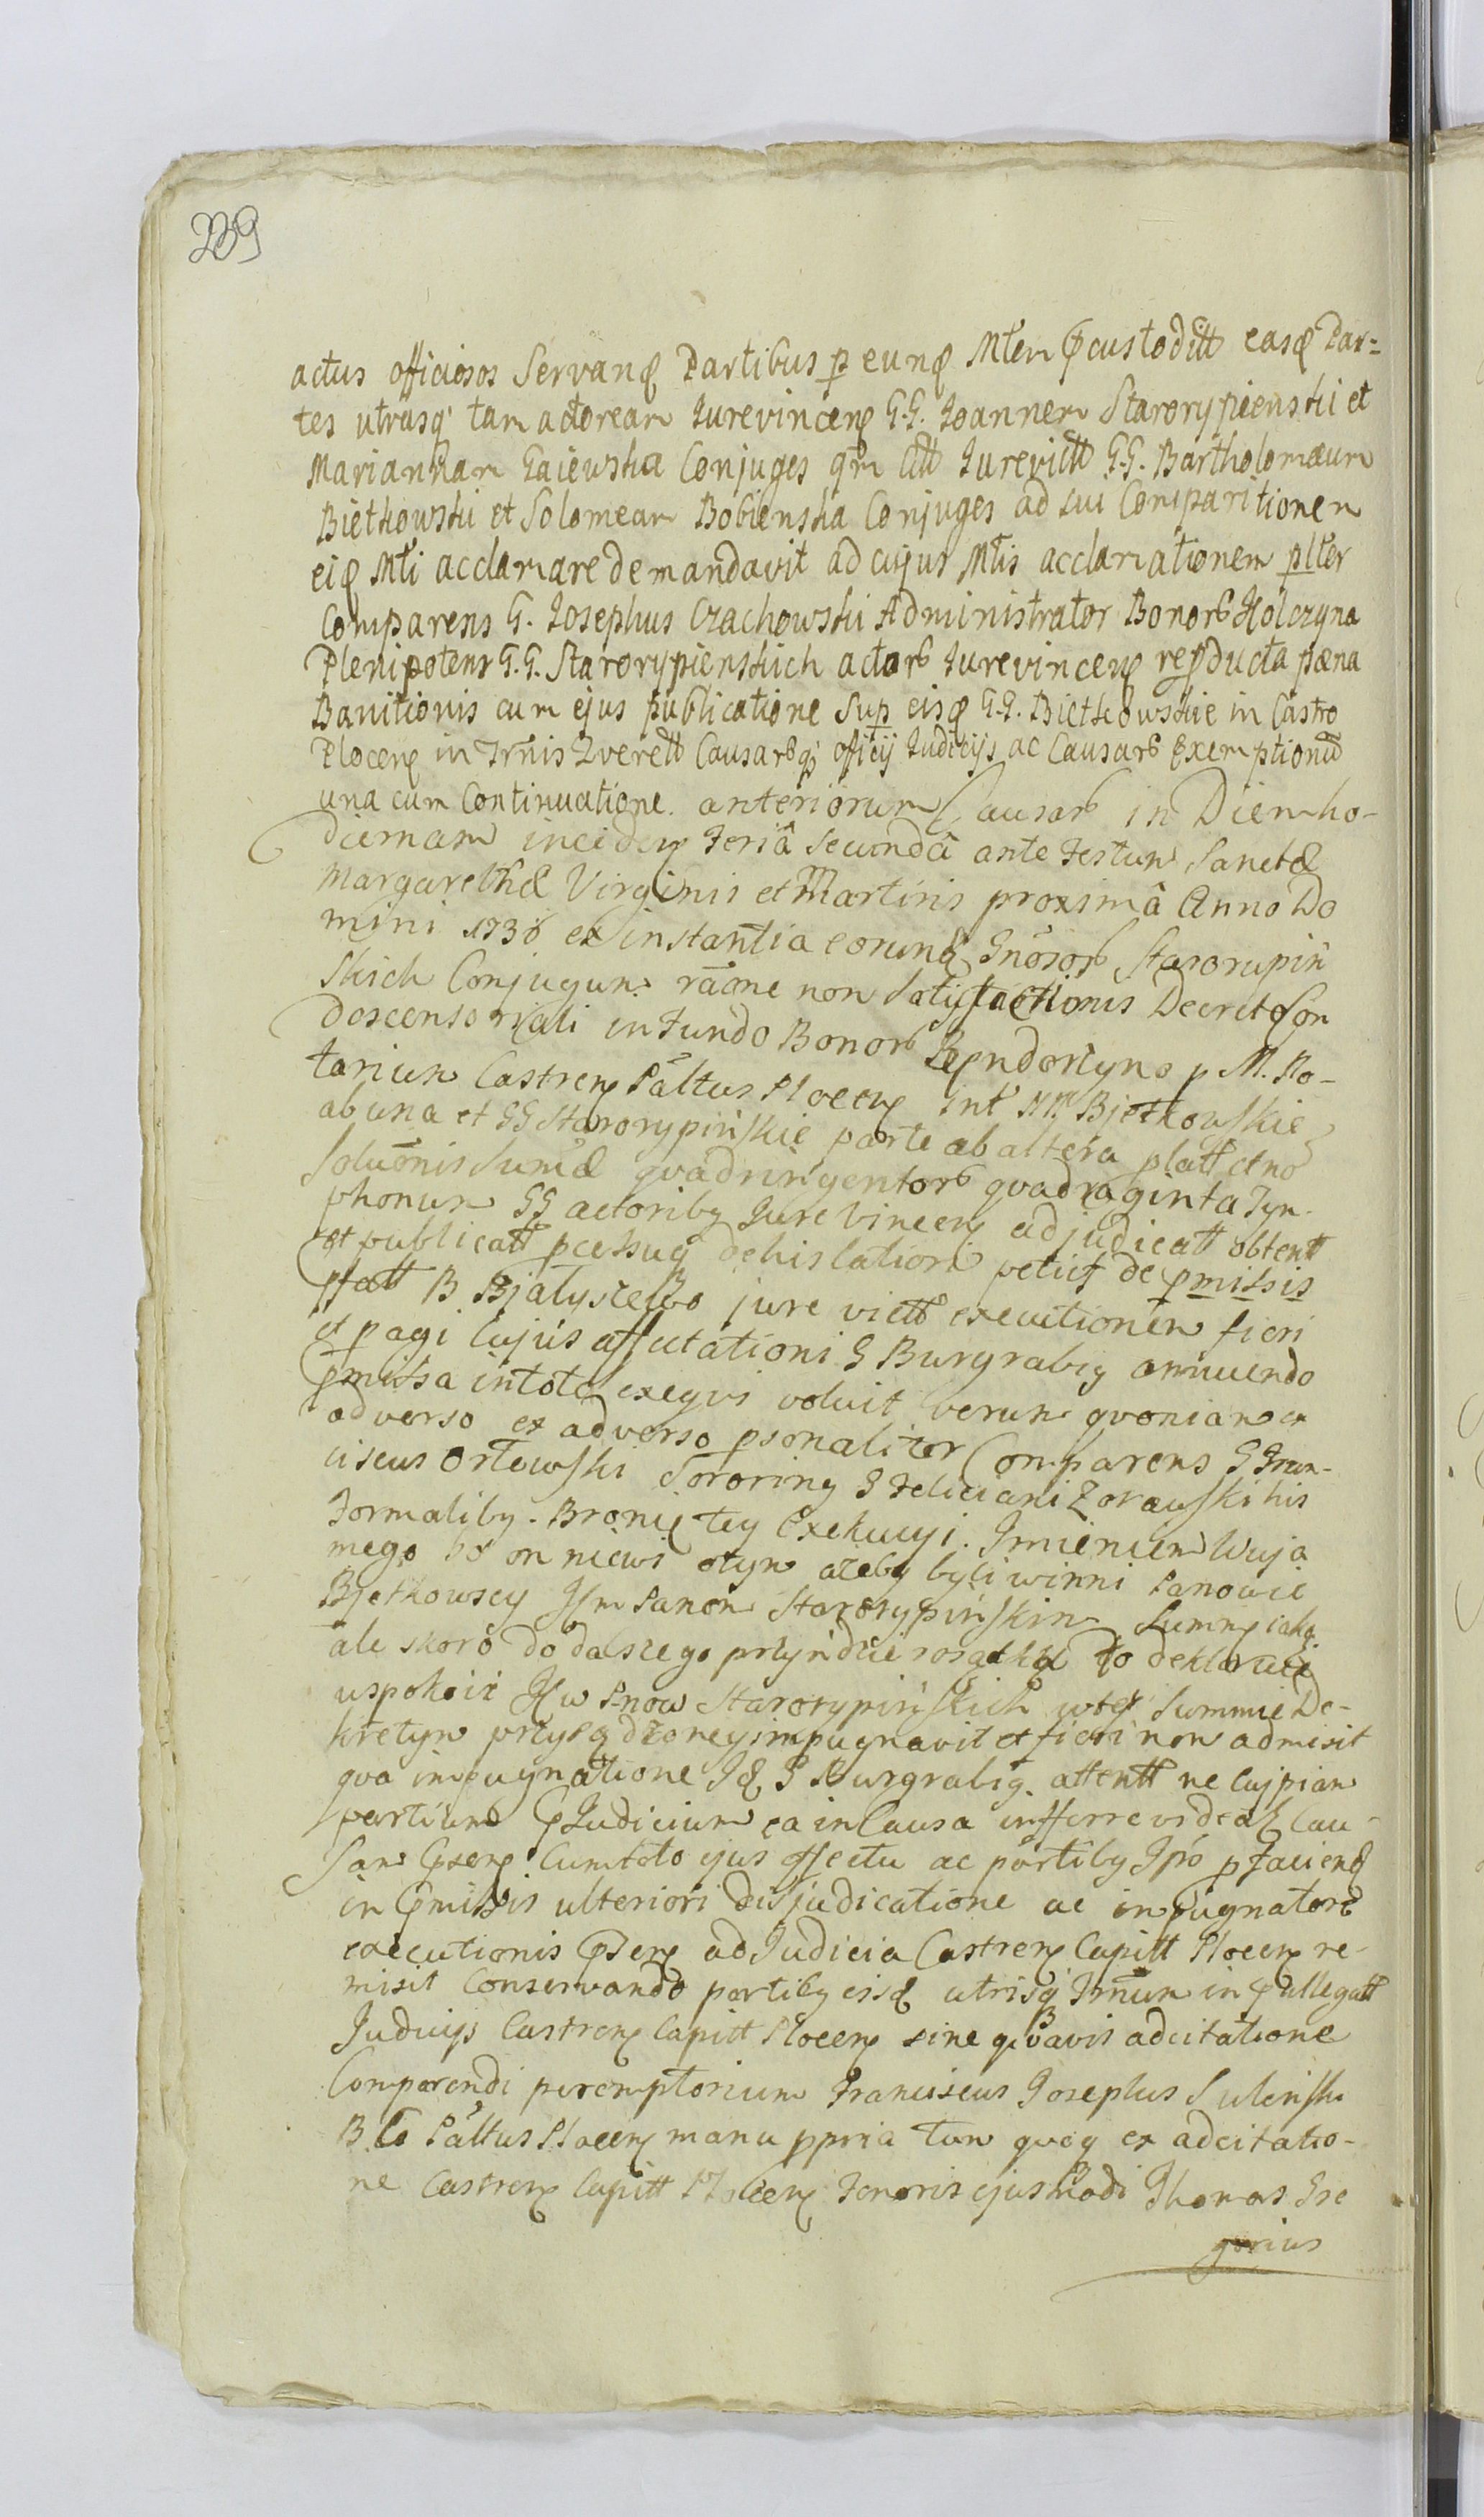 239
actus officiosos Servanđ Partibus p eunđ Mtem Pcustoditt easđ Par=
tes utrasq tam actoream Jurevinceñ G.G. Joannem Starorypienski et
Mariannam Gaiewska Conjuges qm Citt Jurevictt G.G. Bartholomæum
Bietkowski et Solomeam Bobienska Conjuges ad sui Comparitionem
eiđ Mti acclamare demandavit ad cujus Mtis acclamationem plter
Comparens G. Josephus Czachowski Administrator Bonor Holczyna
Plenipotens G.G. Starorypienskich actor Jurevinceñ repducta pæna
Banitionis cum ejus publicatione Sup eisđ G.G. Bietkowskie in Castro
Ploceñ in Trnis Querell Causarq officij Judicijs ac Causar Exemptionũ
una cum Continuatione anteriorum Causar in Diem ho-
diernam inciden feriâ Secundâ ante Festum Sanctæ
Margarethæ Virginis et Martiris proximâ Anno Do
mini 1736 ex instantia eorunđ Gnosor Starorupiń
skich Conjugum raõne non Satisfactionis Decreto Con
descensoriali in Fundo Bonor p M. No-
tarium Castreñ Pãltus Ploceñ Int NN Bjetkowskie
ab una et GG Starorypińskie parte ab altera platt et no
Soluõnis Sumæ quadringentor quadraginta Tyn-
phonum GG actoriby Jure Vinceñ adjudicatt obtentt
et publicatt pcessuq dehis lationi petiit de pmissis
pfatt B jure victt executionem fieri
et pagi Cujus affectationi G Burgrabiq annuendo
pmissa intoto exequi voluit verum quoniam ex
adverso ex adverso psonaliter Comparens G Fran-
ciscus Orłowski Sororiny G Feliciani Zorawski his
Formaliby. Bronię tey Exekucyi. Imieniem Wuja
mego bo on niewi otym azeby byli winni Panowie
Bjetkowscy Jm Panom Starorypińskim Summę iaką
ale skoro do dalszego przyindzie rosądku to deklaruię
uspokoić J w Pnow Starorypińskich wtey Summie De-
kretym przysądzoney impugnavit et fieri non admisit
qua impugnatione Iđ G Burgrabiq attentt ne Cujpiam
partium Pjudicium ea in Causa inferre videat Cau-
sam Pseñ Cum toto ejus effectu ac partiby Ipõ pfacienđ
in Pmissis ulteriori disjudicatione ac inpugnatore
executionis Pseñ ad Judicia Castreñ Capitt Ploceñ re-
misit Conservando partiby eisđ utrisq Trnum in Pallegatt
Judicijs Castreñ Capitt Ploceñ sine quavis adcitatione
Comparendi peremptorium Franciscus Josephus Sulenski
B. C Pãltus Ploceñ manu ppria tum quoq ex adcitatio-
ne Castreñ Capitt Ploceñ Tenoris ejusmodi Thomas Gre
gorius